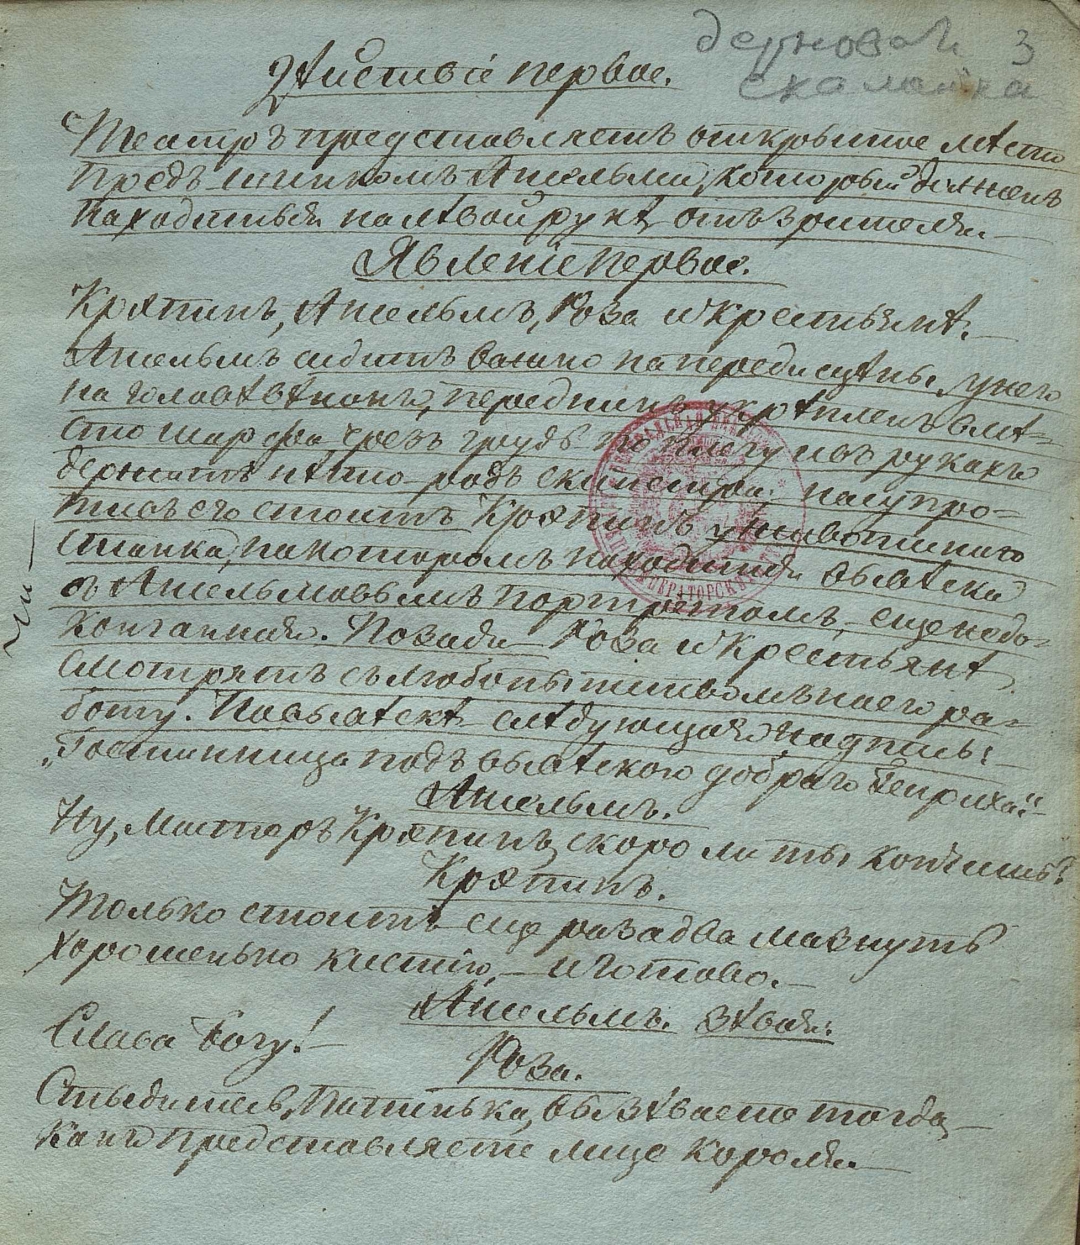 дерновая 3
скамейка
Дѣйствіе первое.
Театръ представляетъ открытое мѣсто
предъ шинкомъ Ансельма, который долженъ
находиться на лѣвой рукѣ отъ зрителя.
Явленіе первое.
Кряпинъ, Ансельмъ, Роза и Крестьянѣ.
Ансельмъ сидитъ важно напереди сцѣны, у него
на головѣ вѣнокъ, передникъ укрѣпленъ вмѣ-
сто шарфа чрезъ грудь по плечу въ рукахъ
держитъ нѣчто родъ скипетра. насупро-
тивъ его стоитъ Кряпинъ у живописнаго
станка, на которомъ находится вывѣска
съ Ансельмовымъ портретомъ, еще недо-
конченная. Позади Роза и Крестьянѣ
смотрятъ съ любопытствомъ на его ра-
боту. На вывѣскѣ слѣдующая надпись:
„Гостинница подъ вывѣскою добраго Генриха"
Ансельмъ.
Ну, Мастеръ Кряпинъ, скоро ли ты кончишь?
Кряпинъ.
Только стоитъ еще раза два махнуть
хорошенько кистію, – и готово.
Ансельмъ. зѣвая.
Слава Богу! –
Роза.
Стыдитесь, Батинька, вы зѣваете тогда,
какъ представляете лице Короля.